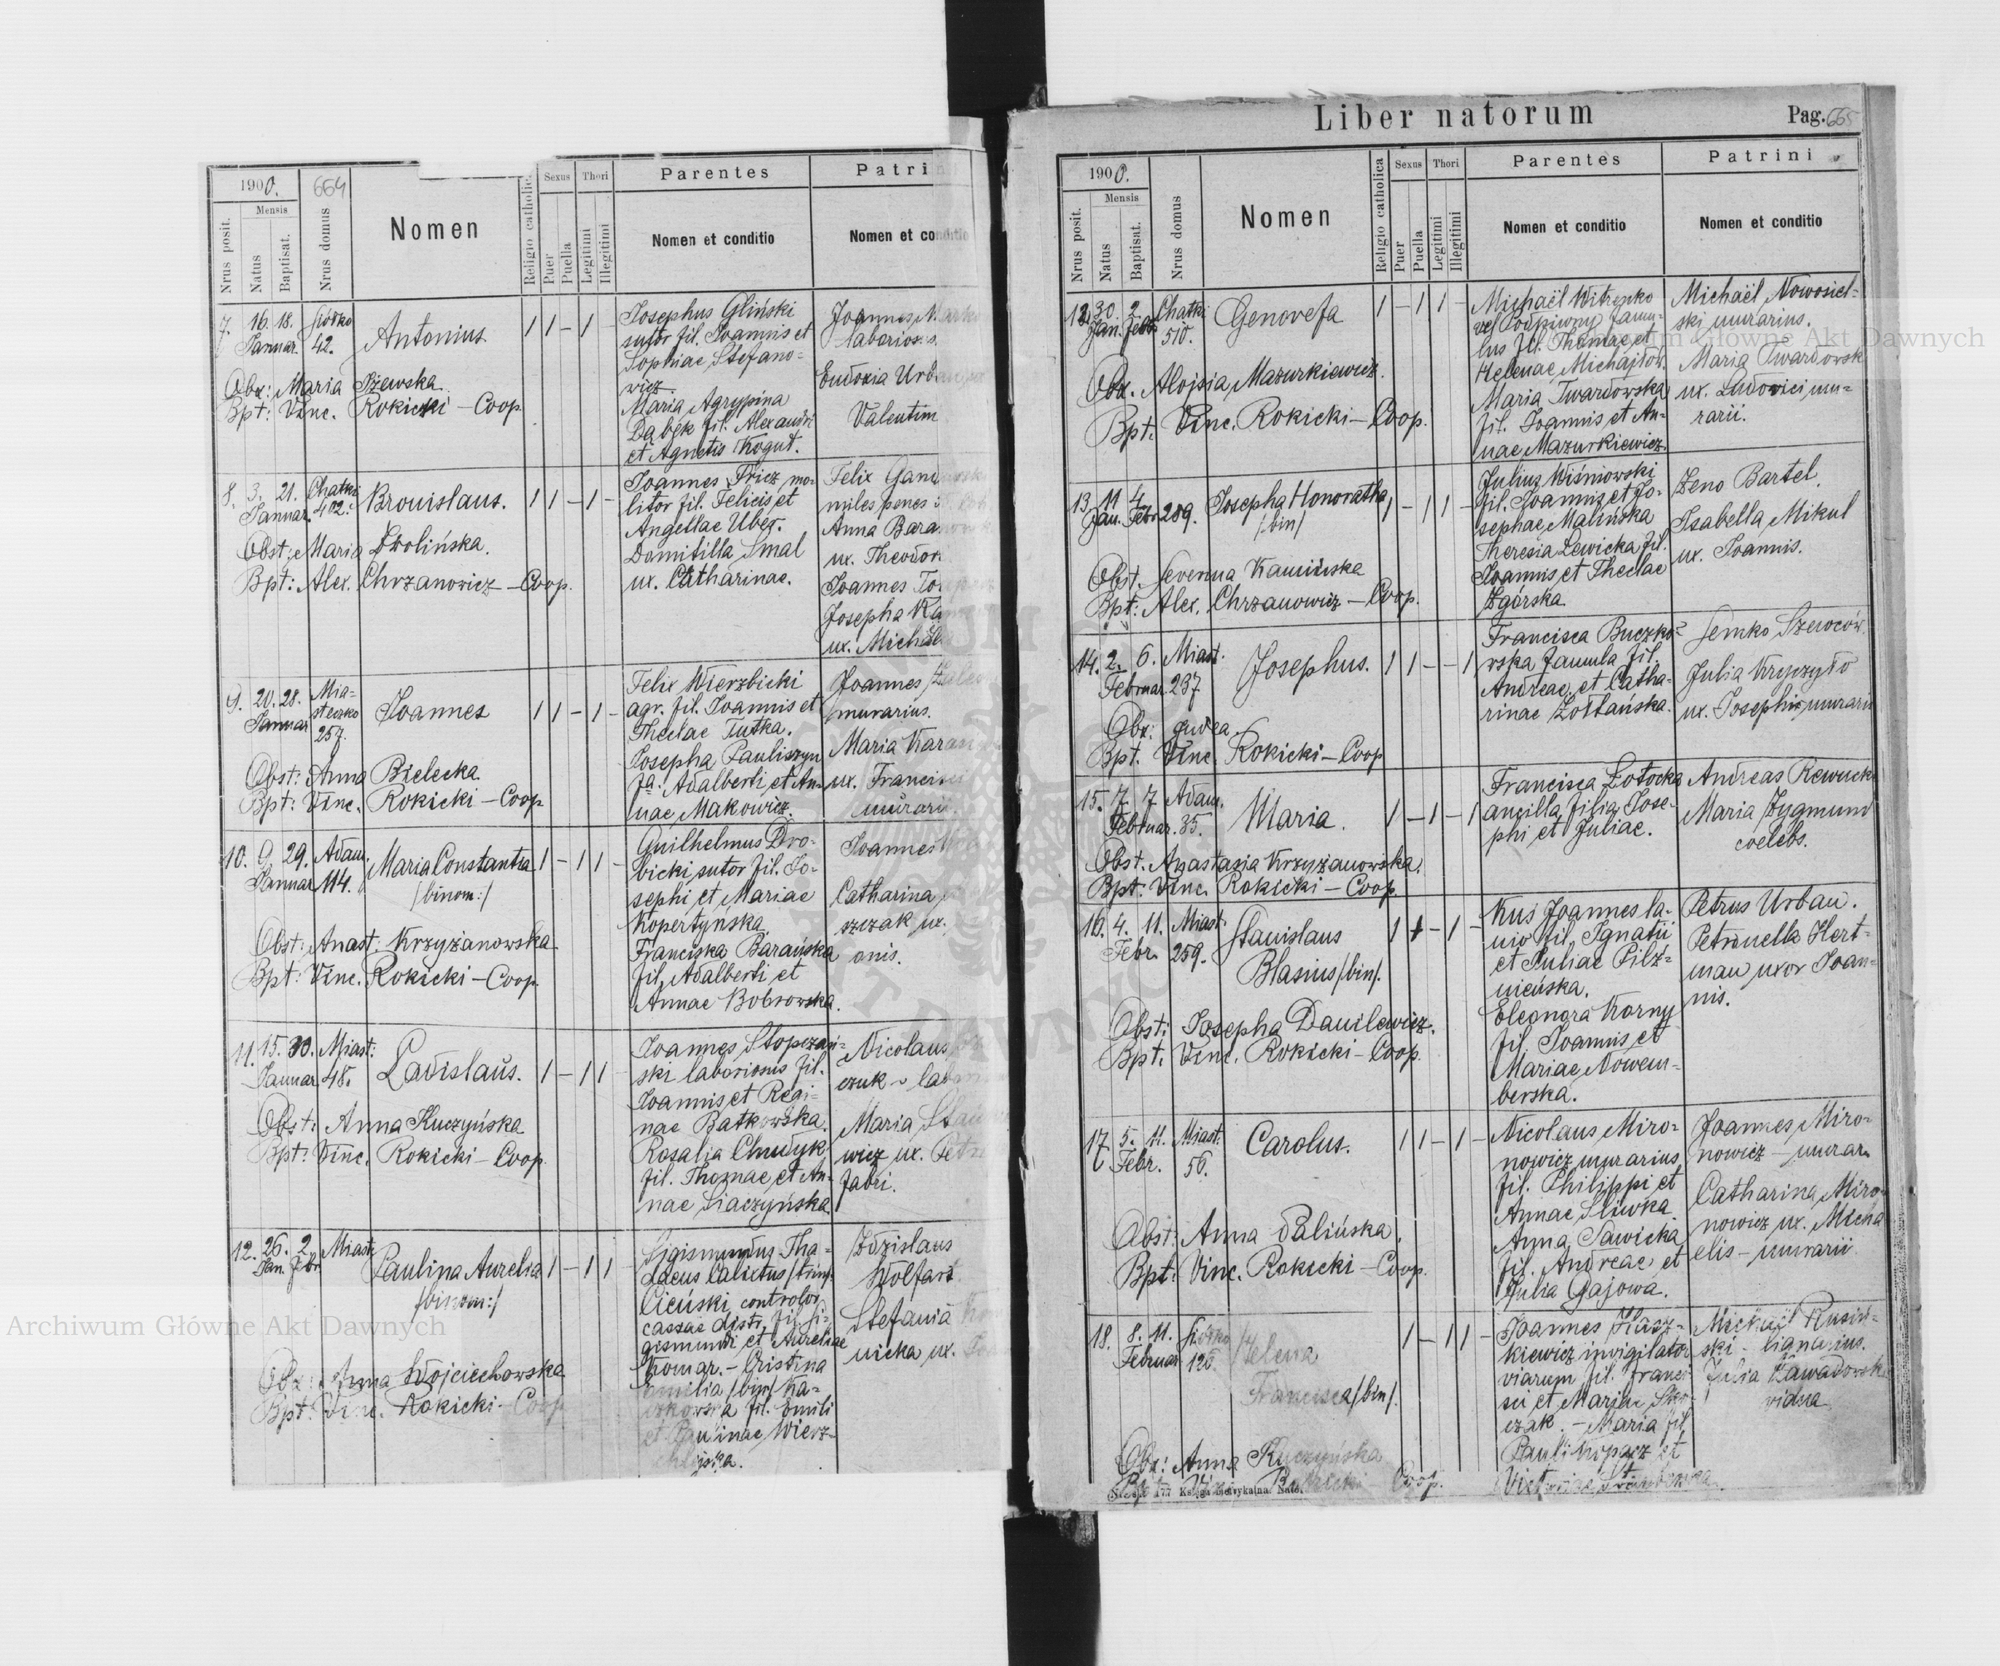 1900.
664
Mensis
Nrus posit.
Natus
Baptisat.
Nrus domus
Nomen
Religio catholica
Sexus
Puer
Puella
Thori
Legitimi
Illegitimi
Parentes
Nomen et conditio
Patrin
Nomen et conditio
7. 16. 18. Siółko
Januar. 42.
Antonius
1 1 – 1 –
Josephus Gliński
sutor fil. Joannis et
Sophiae Stefano-
wicz
Maria Agrypina
Dąbek fil. Alexandri
et Agnetis Kogut.
Joannes
laborios.
Eudoxia Urban
Valentini
Obx: Maria Szewska
Bpt: Vinc. Rokicki – Coop
8. 3. 21. Chatki
Januar. 402.
Bronislaus.
1 1 – 1 –
Joannes Fricz mo-
litor fil. Felicis et
Angellae Uber.
Domitilla Smal
ux. Catharinae.
Felix
miles penes
Anna
ux. Theodor
Joannes
Josepha
ux. Michael
Obst: Maria Skolińska.
Bpt: Alex. Chrzanowicz – Coop.
9. 20. 28. Mia-
Januar steczko
257.
Joannes
1 1 – 1 –
Felix Wierzbicki
agr. fil. Joannis et
Theclae Tutka.
Josepha Pauliszyn
fa. Adalberti et An-
nae Makowicz.
Joannes
murarius.
Maria
ux. Francisci
murarii.
Obst: Anna Bielecka
Bpt: Vinc. Rokicki – Coop
10. 9. 29. Adam.
Januar 114.
Maria Constantia
/binom:/
1 – 1 1 –
Guilhelmus Dro-
bicki sutor fil. Jo-
sephi et Mariae
Kopertyńska
Franciska Barańska
fil. Adalberti et
Annae Bobrowska.
Joannes
Catharina
szczak ux.
onis.
Obst: Anast. Krzyżanowska
Bpt: Vinc. Rokicki – Coop.
11. 15. 30. Miast:
Januar 48.
Ladislaus.
1 – 1 1 –
Joannes Stopczań-
ski laboriosus fil.
Joannis et Regi-
nae Batkowska.
Rosalia Chudyk
fil. Thomae et An-
nae Siaczyńska.
Nicolaus
czuk
Maria
wicz ux.
fabri.
Obst: Anna Kuczyńska
Bpt: Vinc. Rokicki – Coop.
12. 26. 2. Miast:
Jan. Febr.
Paulina Aurelia
/binom:/
1 – 1 1 –
Sigismundus Tha-
daeus Calixtus /trin/.
Cieński controlor
cassae distr. fil. Si-
gismundi et Aureliae
Komar. – Cristina
Emilia /bin/ Ka-
fil. Emili
et Paulinae Wierz-
Zdzislaus
Wolfart
Stefania
nicka ux.
Obx: Anna Wojciechowska
Bpt: Vinc. Rokicki – Coop
Liber natorum
Pag. 665
1900.
Mensis
Nrus posit.
Natus
Baptisat.
Nrus domus
Nomen
Religio catholica
Sexus
Puer
Puella
Thori
Legitimi
Illegitimi
Parentes
Nomen et conditio
Patrini
Nomen et conditio
12. 30. 2. Chatki
Jan. Febr. 510.
Genovefa
1 – 1 1 –
Michaël Witrenko
vel Podpiwny famu-
lus fil. Thomae et
Helenae Michajłów.
Maria Twardowska
fil. Joannis et An-
nae Mazurkiewicz.
Michaël Nowosiel-
ski murarius.
Maria Twardowsk
ux. Ludovici mu-
rarii.
Obx. Alojsia Mazurkiewicz.
Bpt: Vinc. Rokicki – Coop.
13. 11. 4. 289.
Jan. Febr.
Josepha Honoratha
/bin/
1 – 1 1 –
Julius Wiśniowski
fil. Joannis et Jo-
sephae Malińska
Theresia Lewicka fil.
Joannis et Theclae
Zgórska.
Zeno Bartel.
Isabella Mikul
ux. Joannis.
Obst. Severina Kamińska
Bpt: Alex. Chrzanowicz – Coop.
14. 2. 6. Miast.
Februar 237
Josephus.
1 1 – – 1
Francisca Buczko-
wska famula fil.
Andreae et Catha-
rinae Żołtańska.
Semko Szewców.
Julia Kryczyło
ux. Josephi murarii
Obx: quaea.
Bpt. Vinc. Rokicki – Coop
15. 7. 7. Adam.
Februar. 35.
Maria.
1 – 1 – 1
Francisca Łotocka
ancilla filia Jose-
phi et Juliae.
Andreas Rewucki
Maria Zygmund
coelebs.
Obst. Anastasia Krzyżanowska.
Bpt: Vinc. Rokicki – Coop.
16. 4. 11. Miast.
Febr. 259.
Stanislaus
Blasius /bin/.
1 1 – 1 –
Kus Joannes la-
nio fil. Ignatii
et Juliae Pilź-
nieńska.
Eleonora Korny
fil. Joannis et
Mariae Nowem-
berska.
Petrus Urban.
Petronella Hert-
man uxor Joan-
nis.
Obst: Josepha Danilewicz.
Bpt: Vinc. Rokicki – Coop.
17. 5. 11. Miast.
Febr. 56.
Carolus.
1 1 – 1 –
Nicolaus Miro-
nowicz murarius
fil. Philippi et
Annae Sliwka
Anna Sawicka
fil. Andreae et
Julia Gajowa.
Joannes Miro-
nowicz – murar.
Catharina Miro-
nowicz ux. Micha
elis – murarii
Obst: Anna Palińska.
Bpt: Vinc. Rokicki – Coop.
18. 8. 11. Siółko
Februar 126.
Helena
Francisca /bin/.
1 – 1 1 –
Joannes Hasz-
kiewicz invigilator
viarum fil. Franci
sci et Mariae Sko-
czak. – Maria fil.
Pauli Kopacz et
Michaël Rusin-
ski – lignarius.
Julia Zawadowsk
vidua
Obx: Anna Kuczyńska
Bpt: Vinc. Rokicki – Coop.
Archiwum Główne Akt Dawnych
Archiwum Główne Akt Dawnych